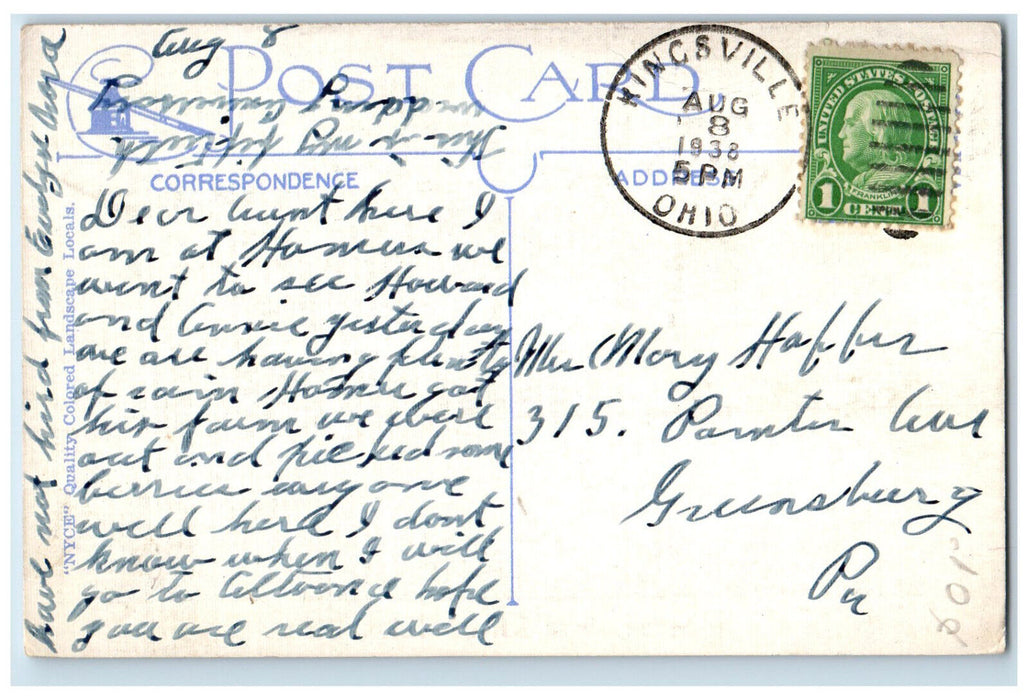 Aug 8
POST CARD
CORRESPONDENCE
ADDRESS
KINGSVILLE
AUG
8
1938
5 PM
OHIO
UNITED STATES POSTAGE
FRANKLIN
1 CENT 1
Dear Aunt here I
am at Homers we
went to see Howard
and Annie yesterday
we are having plenty
of rain Homer got
his farm we were
out and picked some
berries every one
well here I dont
know when I will
go to Altoona hope
you are real well
have not hird from Evelyn
This is my fiftieth
Mrs Mary Haffer
315. Painter Ave
Greensburg
Pa
"NYCE" Quality Colored Landscape Locals.